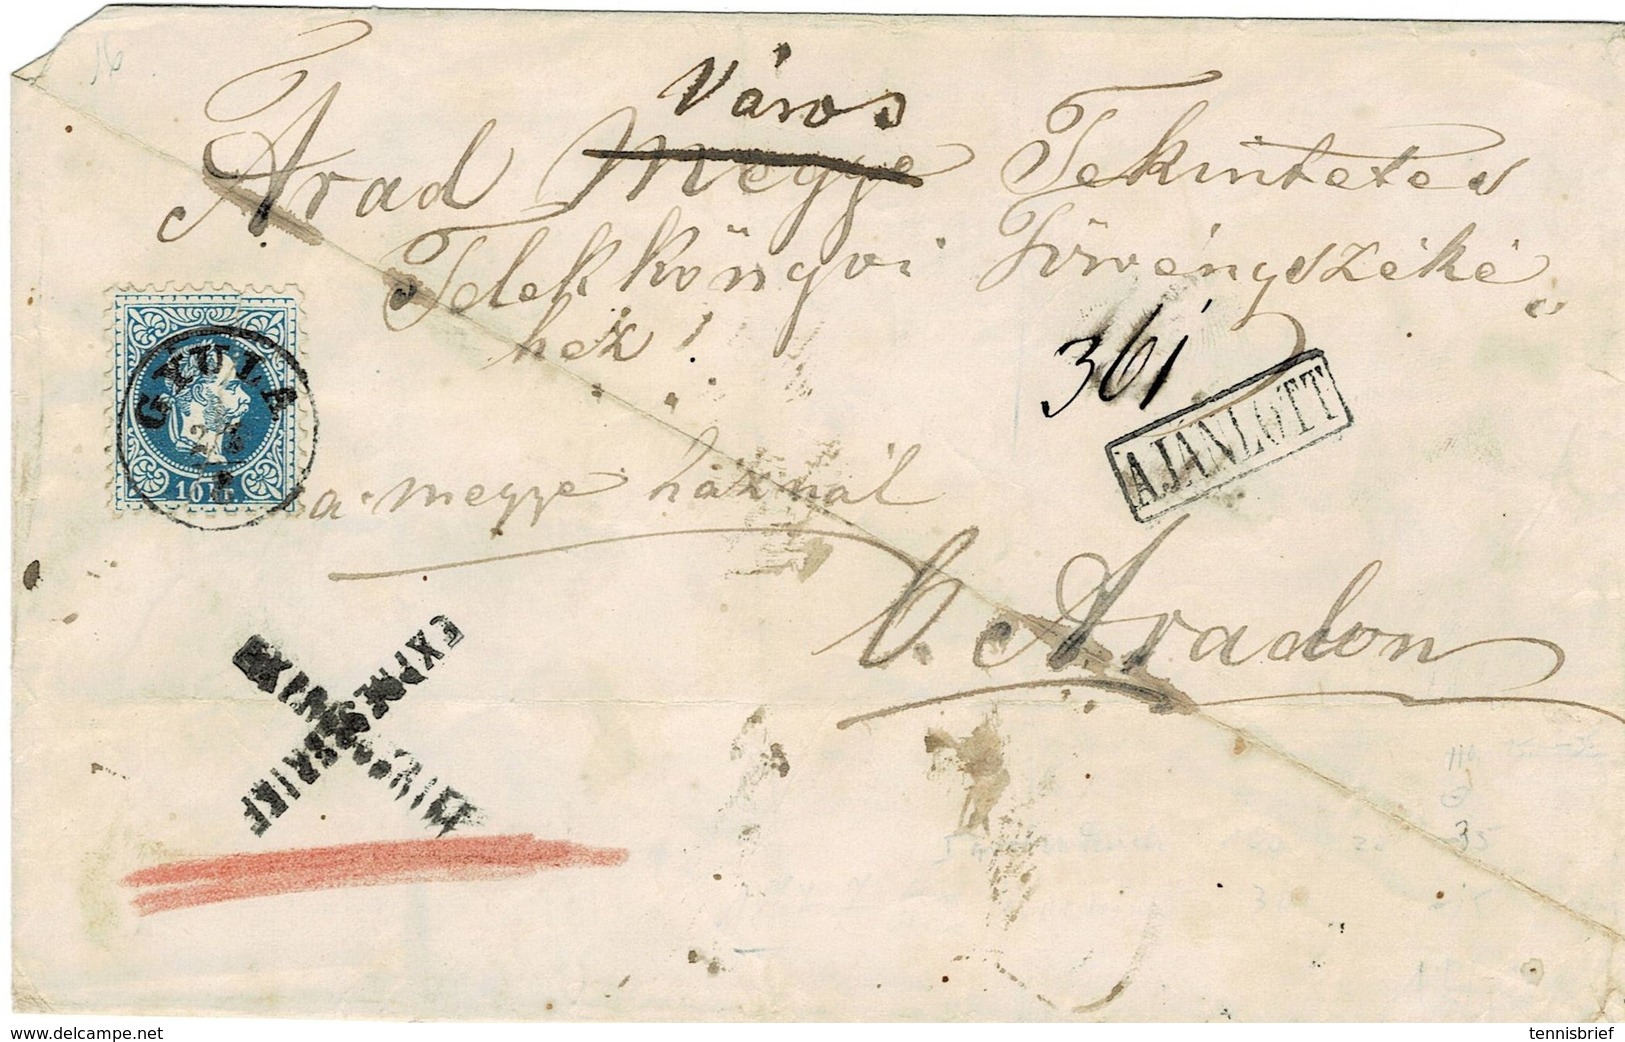 16
Város
Arad Megye Tekintetes
Telekkönyvi Törvényszéké„
hez!
361
AJÁNLOTT
GYULA
10 kr.
a megye háznál
Aradon
EXPRESSBRIEF
35
delcampe.net
tennisbrief